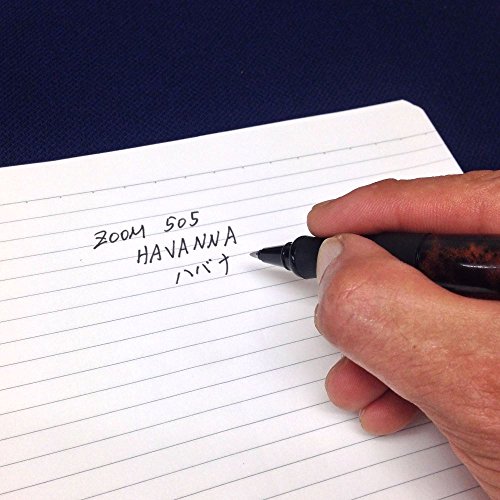 ZOOM 505
HAVANNA
ハバナ